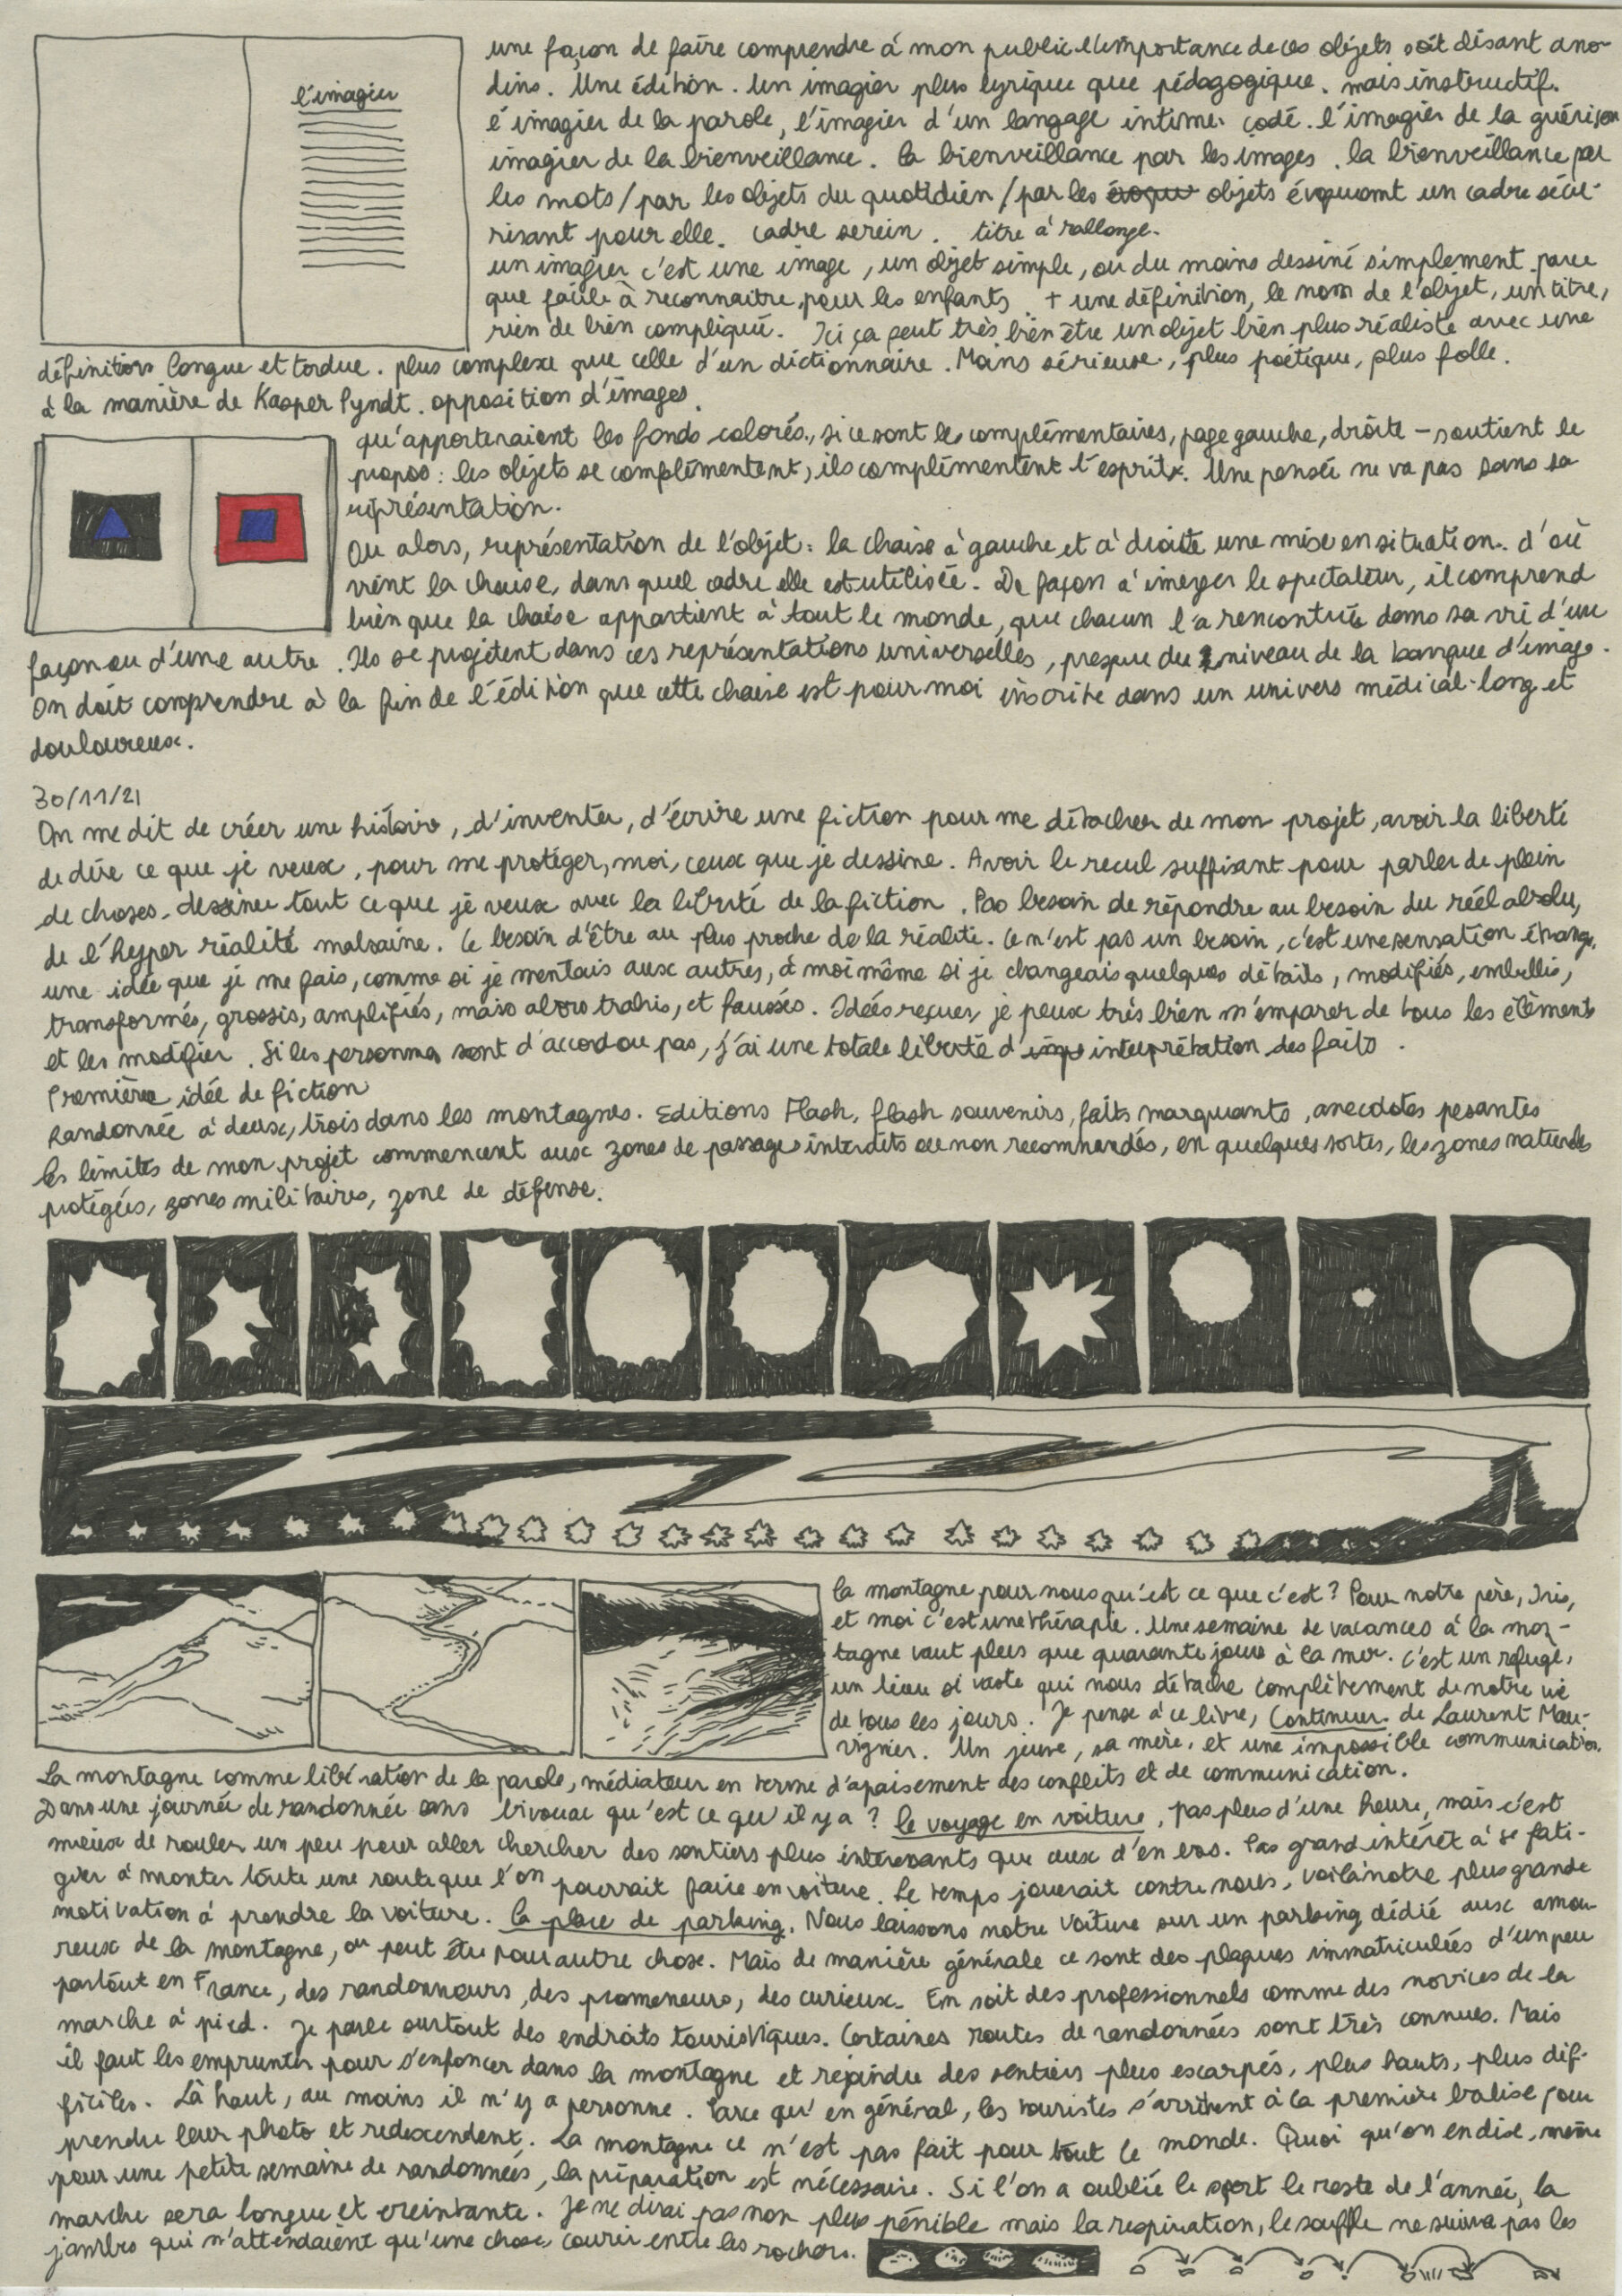 l'imagier
une façon de faire comprendre à mon public l'importance de ces objets soit disant ano-
dins. Une édition. Un imagier plus lyrique que pédagogique. mais instructif.
l'imagier de la parole, l'imagier d'un langage intime. codé. l'imagier de la guérison
imagier de la bienveillance. la bienveillance par les images. la bienveillance par
les mots/par les objets du quotidien/par les évoqu objets évoquant un cadre sécu-
risant pour elle. cadre serein. titre à rallonge.
un imagier c'est une image, un objet simple, ou du moins dessiné simplement parce
que facile à reconnaitre pour les enfants. + une définition, le nom de l'objet, un titre,
rien de bien compliqué. Ici ça peut très bien être un objet bien plus réaliste avec une
définition longue et tordue. plus complexe que celle d'un dictionnaire. Moins sérieuse, plus poétique, plus folle.
à la manière de Kasper Pyndt. opposition d'images.
qu'apporteraient les fonds colorés, si ce sont les complémentaires, page gauche, droite - soutient le
propos : les objets se complémentent, ils complémentent l'esprit. Une pensée ne va pas sans sa
représentation.
Ou alors, représentation de l'objet : la chaise à gauche et à droite une mise en situation. d'où
vient la chaise, dans quel cadre elle est utilisée. De façon à imerger le spectateur, il comprend
bien que la chaise appartient à tout le monde, que chacun l'a rencontrée dans sa vie d'une
façon ou d'une autre. Ils se projètent dans ces représentations universelles, presque du niveau de la banque d'image.
On doit comprendre à la fin de l'édition que cette chaise est pour moi inscrite dans un univers médical-long et
douloureux.
30/11/21
On me dit de créer une histoire, d'inventer, d'écrire une fiction pour me détacher de mon projet, avoir la liberté
de dire ce que je veux, pour me protéger, moi, ceux que je dessine. Avoir le recul suffisant pour parler de plein
de choses. dessiner tout ce que je veux avec la liberté de la fiction. Pas besoin de répondre au besoin du réel absolu,
de l'hyper réalité malsaine. Ce besoin d'être au plus proche de la réalité. Ce n'est pas un besoin, c'est une sensation étrange,
une idée que je me fais, comme si je mentais aux autres, à moi même si je changeais quelques détails, modifiés, embellis,
transformés, grossis, amplifiés, mais alors trahis, et faussés. Idées reçues, je peux très bien m'emparer de tous les éléments
et les modifier. Si les personnes sont d'accord ou pas, j'ai une totale liberté d' interprétation des faits.
Première idée de fiction
Randonnée à deux, trois dans les montagnes. Editions Flash, flash souvenirs, faits marquants, anecdotes pesantes
les limites de mon projet commencent aux zones de passages interdits ou non recommandés, en quelques sortes, les zones naturelles
protégées, zones militaires, zone de défense.
la montagne pour nous qu'est ce que c'est ? Pour notre père, Iris,
et moi c'est une thérapie. Une semaine de vacances à la mon-
tagne vaut plus que quarante jours à la mer. C'est un refuge,
un lieu si vaste qui nous détache complètement de notre vie
de tous les jours. Je pense à ce livre, Continuer de Laurent Mau-
vignier. Un jeune, sa mère, et une impossible communication.
La montagne comme libération de la parole, médiateur en terme d'apaisement des conflits et de communication.
Dans une journée de randonnée sans bivouac qu'est ce qu'il y a ? le voyage en voiture, pas plus d'une heure, mais c'est
mieux de rouler un peu pour aller chercher des sentiers plus intéressants que ceux d'en bas. Pas grand intérêt à se fati-
guer à monter toute une route que l'on pourrait faire en voiture. Le temps jouerait contre nous, voilà notre plus grande
motivation à prendre la voiture. la place de parking. Nous laissons notre voiture sur un parking dédié aux amou-
reux de la montagne, ou peut être pour autre chose. Mais de manière générale ce sont des plaques immatriculées d'un peu
partout en France, des randonneurs, des promeneurs, des curieux. En soit des professionnels comme des novices de la
marche à pied. Je parle surtout des endroits touristiques. Certaines routes de randonnées sont très connues. Mais
il faut les emprunter pour s'enfoncer dans la montagne et rejoindre des sentiers plus escarpés, plus hauts, plus dif-
ficiles. Là haut, au moins il n'y a personne. Parce qu'en général, les touristes s'arrêtent à la première balise pour
prendre leur photo et redescendent. La montagne ce n'est pas fait pour tout le monde. Quoi qu'on en dise, même
pour une petite semaine de randonnées, la préparation est nécessaire. Si l'on a oublié le sport le reste de l'année, la
marche sera longue et ereintante. Je ne dirai pas non plus pénible mais la respiration, le souffle ne suivra pas les
jambes qui n'attendaient qu'une chose, courir entre les rochers.